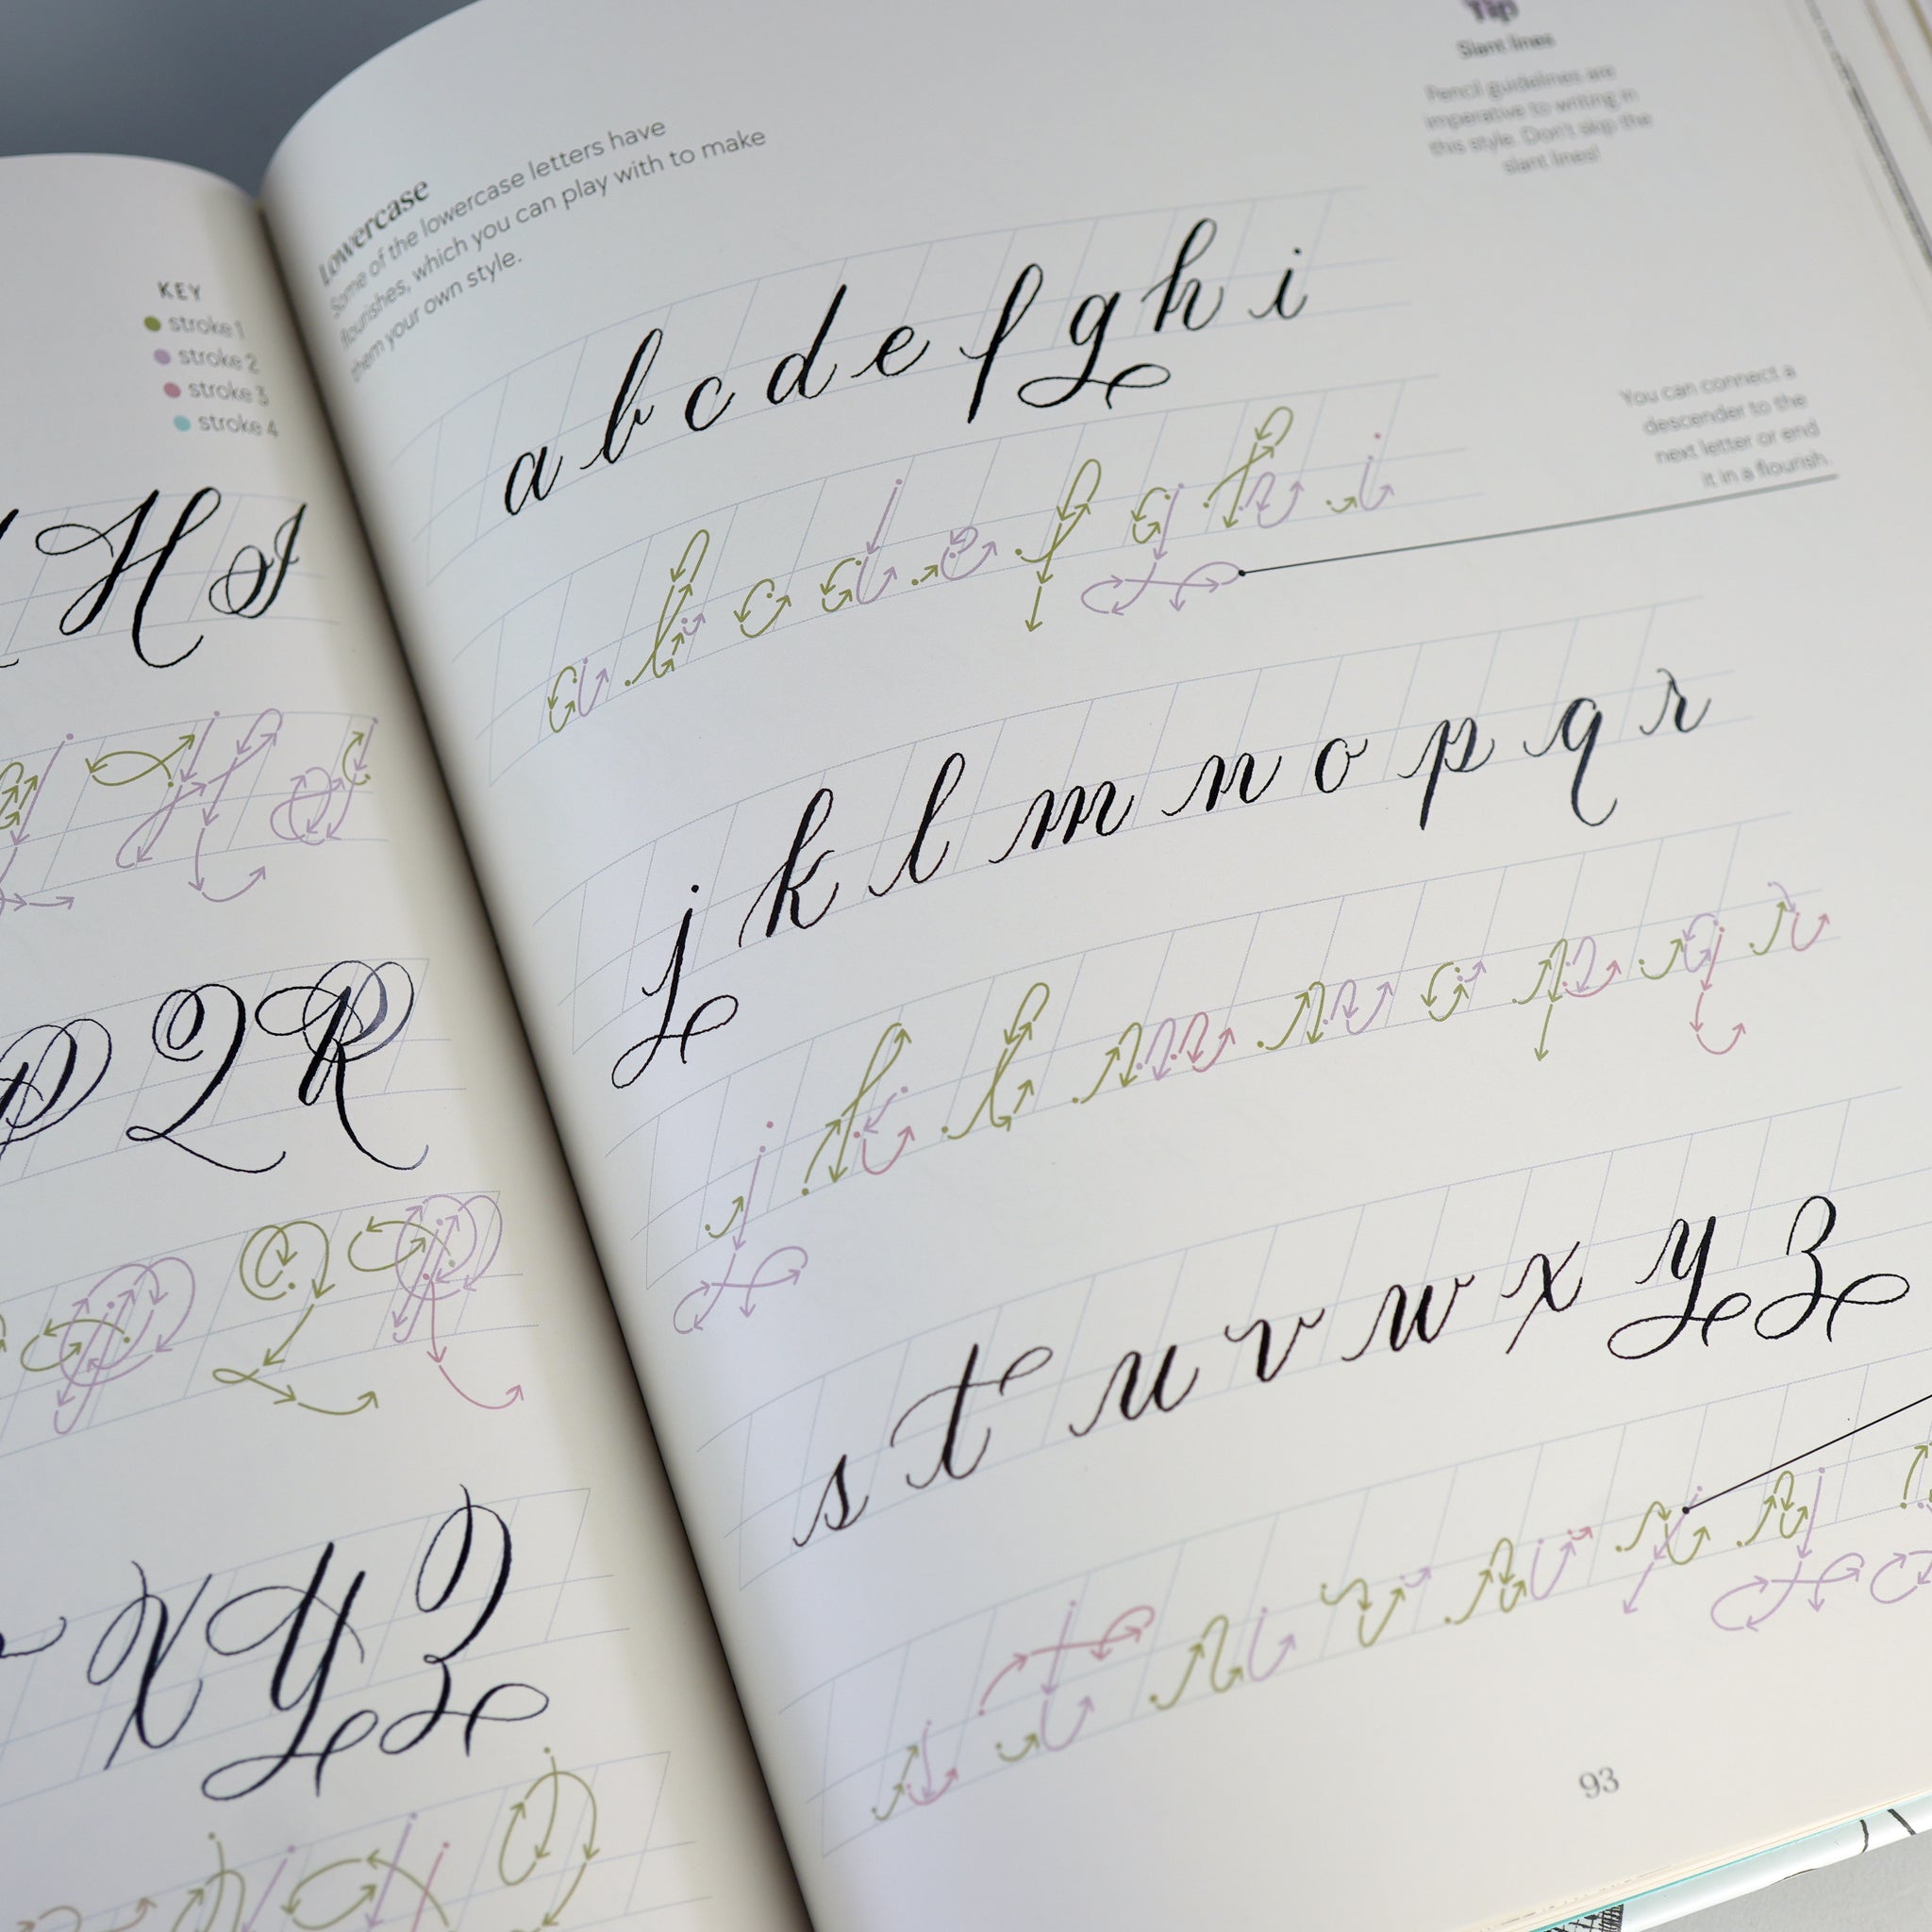 KEY
stroke 1
stroke 2
stroke 3
stroke 4
H I
P Q R
X Y Z
Lowercase
Some of the lowercase letters have
flourishes, which you can play with to make
them your own style.
a b c d e f g h i
j k l m n o p q r
s t u v w x y z
Tip
Slant lines
Pencil guidelines are
imperative to writing in
this style. Don't skip the
slant lines!
You can connect a
descender to the
next letter or end
it in a flourish.
93